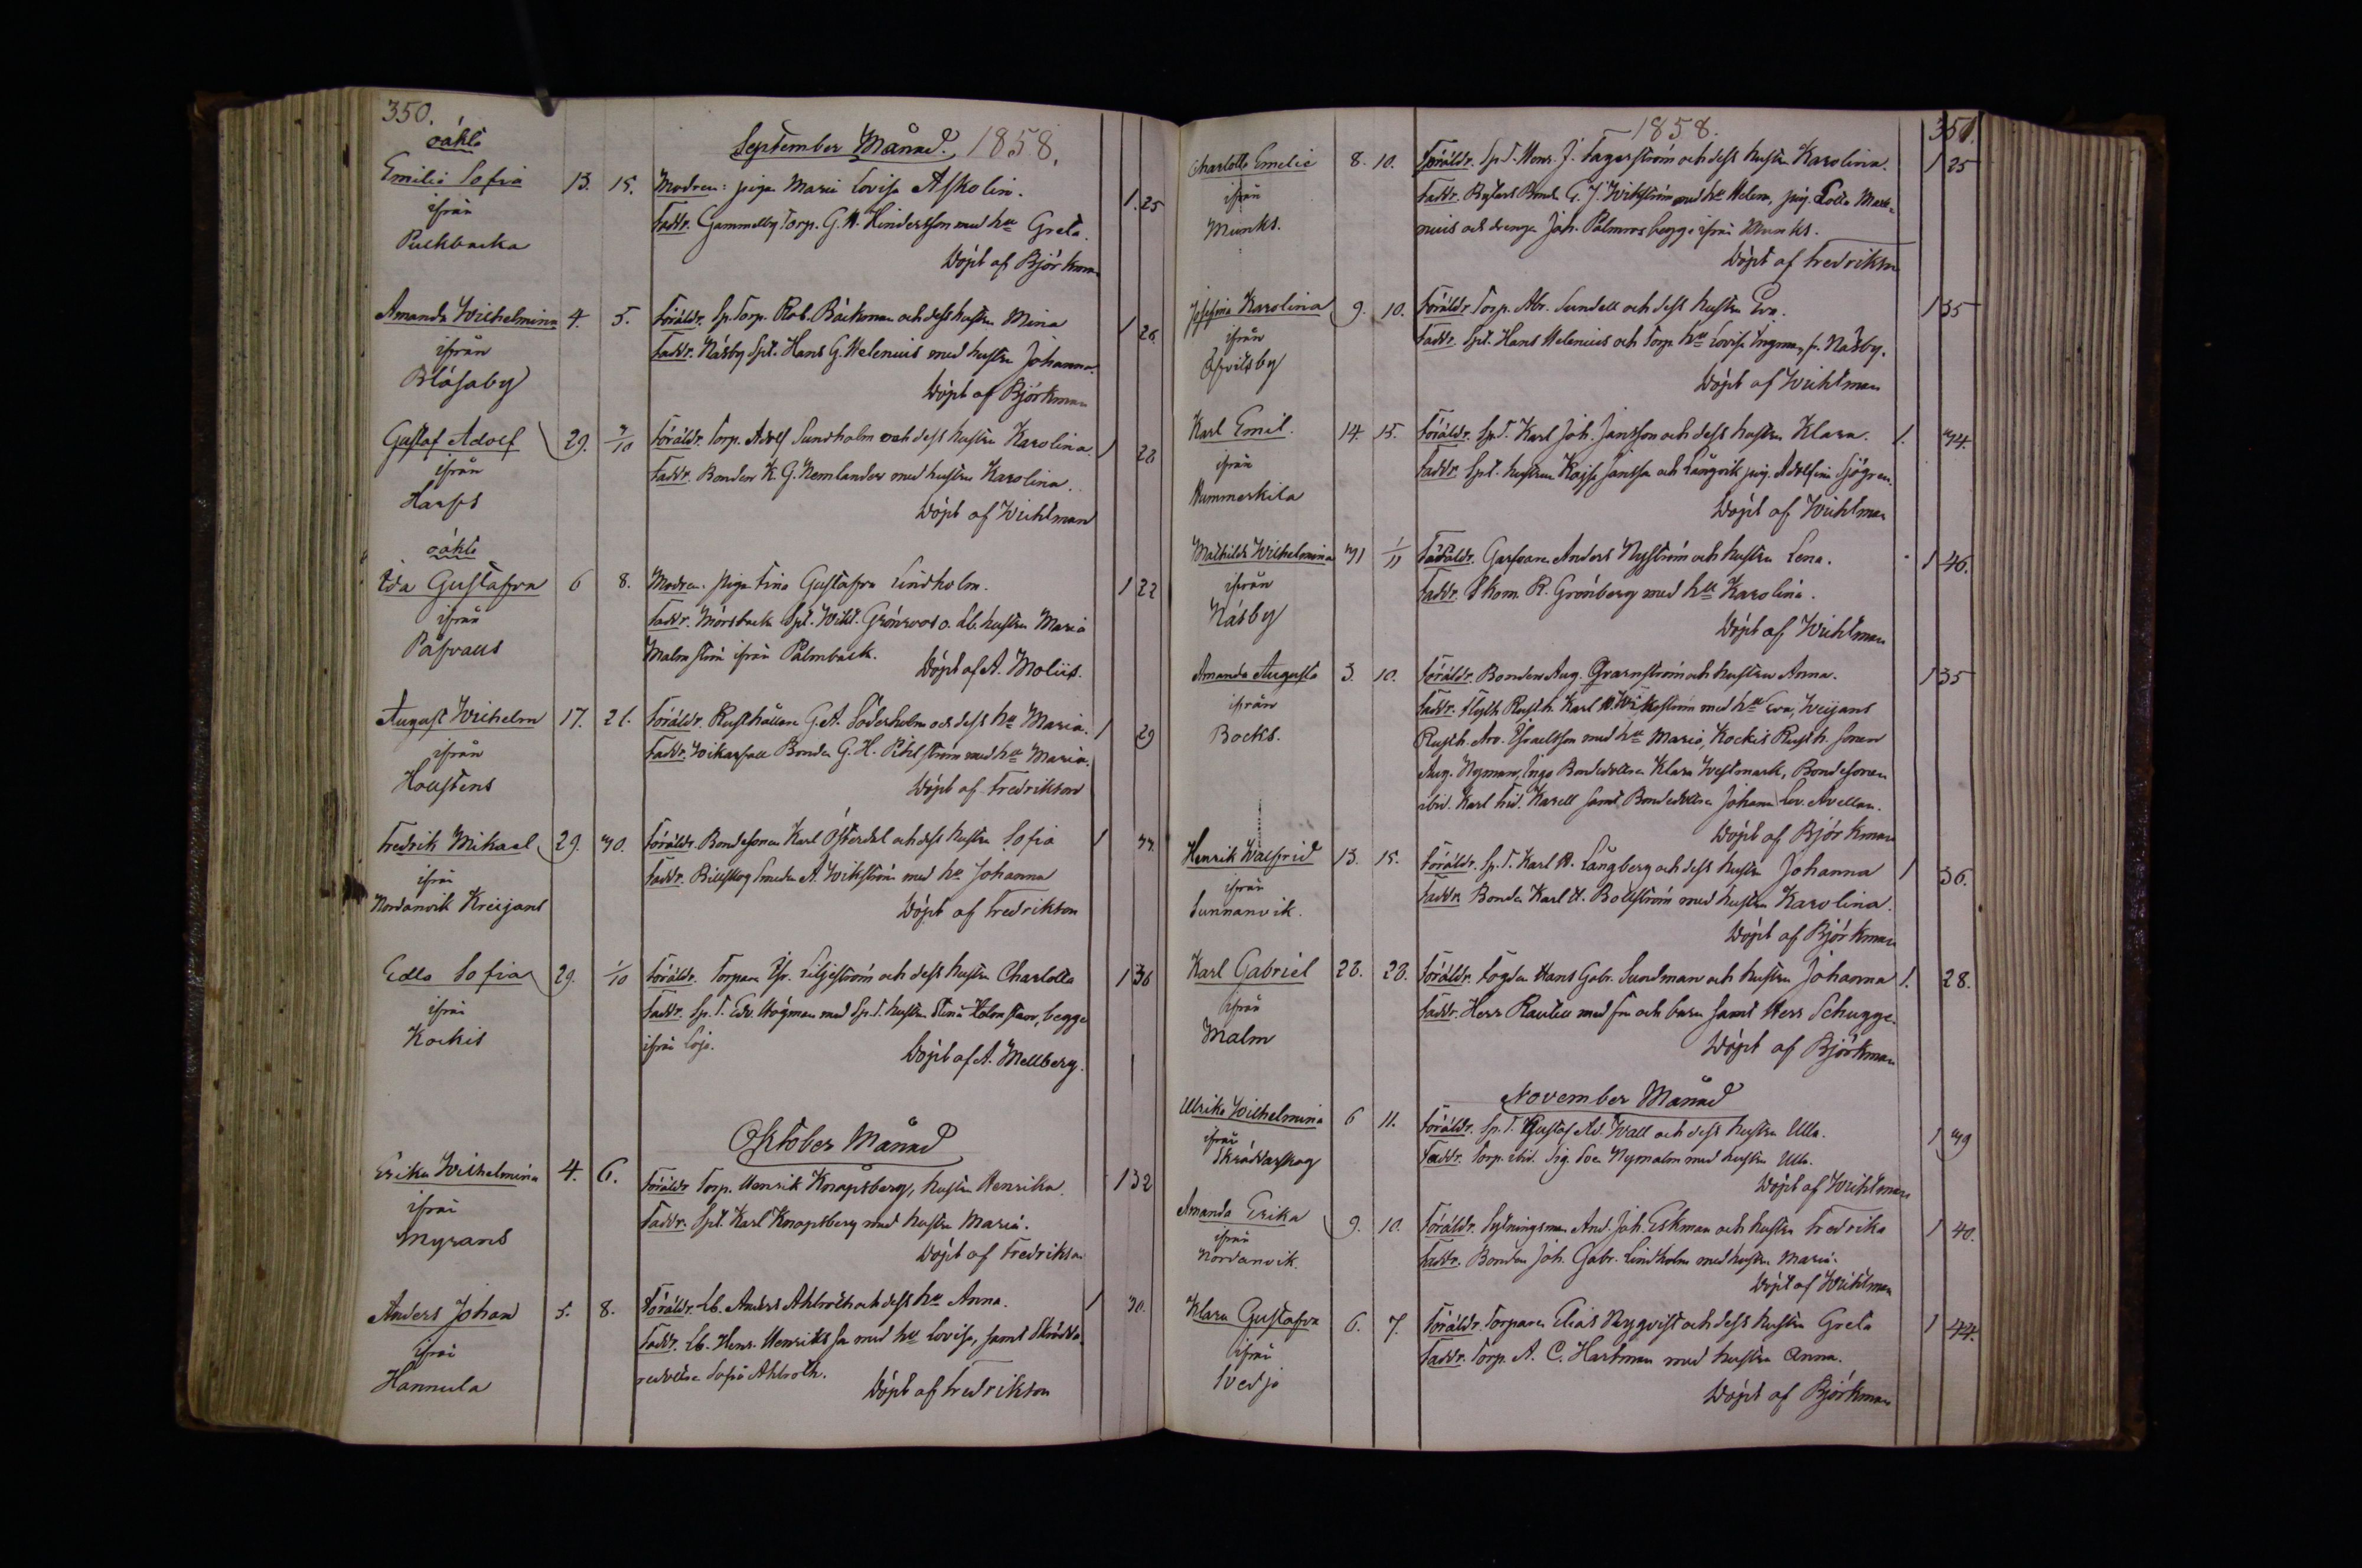 350.
oäkta
September Månad. 1858.
Emilia Sofia 13. 15. Modren: pigan Maria Lovisa Askolin. 1. 25
ifrån Faddr. Gammelby Torp. G. A. Lindersson med hu Greta.
Puckbacka
Döpt af Björkman
Amanda Wilhelmina 4. 5. Föräldr. Sp. Torp. Rob. Bäckman och dess hustru Mina 1 26
ifrån Faddr. Näsby Spt. Hans G. Helenius med hustru Johanna.
Blåsaby
Döpt af Björkman
Gustaf Adolf 29. Föräldr. Torp. Adolf Sundholm och dess hustru Karolina. 1 28
ifrån Faddr. Bonden K. G. Nemlander med hustru Karolina.
Harfs
Döpt af Wichtman
oäkta
Ida Gustafva 6 8. Modren. Pigan Fina Gustafva Lindholm. 1 22
ifrån Faddr. Mörsbacka Spt. Wilh. Grönroos o. Lb. hustru Maria
Påfvals Malmström ifrån Palmback. Döpt af A. Molüs.
August Wilhelm 17. 21. Föräldr. Rusthållare G. A. Söderholm och dess hu Maria. 1 29
ifrån Faddr. Wikarfall Bonden G. H. Pihlström med hu Maria.
Hollstens
Döpt af Fredrikson
Fredrik Mikael 29. 30. Föräldr. Bondesonen Karl Österdal och dess hustru Sofia 1
ifrån Faddr. Billskog Smeden A. Wikström med hu Johanna
Nordanvik Kreijans
Döpt af Fredrikson
Edla Sofia 29. 1/10 Föräldr. Torparen Isr. Liljeström och dess hustru Charlotta 1 36
ifrån Faddr. Sp. T. Edv. Högman med Sp. T. hustru Stina Holmstén, begge
Kockis ifrån Lojo. Döpt af A. Mellberg.
Oktober Månad
Erika Wilhelmina 4. 6. Föräldr. Torp. Henrik Knapsberg, hustru Henrika. 1 32
ifrån Faddr. Spt. Karl Knapsberg med hustru Maria.
Myrans
Döpt af Fredrikson
Anders Johan 5. 8. Föräldr. Lb. Anders Ahlroth och dess hu Anna. 1 30.
ifrån Faddr. Lb. Hans Henriksson med hu Lovisa, samt Skrädda-
Hannula redottren Sofia Ahlroth. Döpt af Fredrikson
1858. 351.
Charlotta Emelie 8. 10. Föräldr. Sp. T. Henr. J. Fagerström och dess hustru Karolina. 1 25
ifrån Faddr. Bylars Bond. G. J. Wikström med hu Helena, pig. Lotta Mark-
Munks. nuis och drengen Joh. Palmros begge ifrån Munks.
Döpt af Fredrikson
Josefina Karolina 9. 10. Föräldr. Torp. Abr. Sundell och dess hustru Eva. 1 35
ifrån Faddr. Spt. Hans Helenius och Torp. hu Lovisa Ingman, fr. Näsby.
Döpt af Wichtman
Karl Emil. 14. 15. Föräldr. Sp. T. Karl Joh. Jansson och dess hustru Klara. 1. 34.
ifrån Faddr. Spt. hustrun Kajsa Jansson och Långvik pig. Adolfina Sjögren.
Nummerkila
Döpt af Wichtman
Mathilda Wilhelmina 31 1/11 Föräldr. Garfvaren Anders Nyström och hustru Lena. 1 46.
ifrån Faddr. Skom. R. Grönberg med hu Karolina.
Näsby
Döpt af Wichtman
Amanda Augusta 3. 10. Föräldr. Bonden Aug. Qvarnström och hustru Anna. 1 35
ifrån Faddr. Flyth Rusth. Karl A. Wikström med hu Eva, Weijans
Bocks. Rusth. Arv. Israelsson med hu Maria, Kockis Rusth. sonen
Aug. Nyman, Inga Bondedottren Klara Westmark, Bondesonen
ibid. Karl Fred. Karell samt Bondedottren Johanna Lov. Avellan.
Döpt af Björkman
Henrik Walfrid 13. 15. Föräldr. Sp. T. Karl A. Långberg och dess hustru Johanna 1 36.
ifrån Faddr. Bonden Karl A. Bollström med hustru Karolina.
Sunnanvik.
Döpt af Björkman
Karl Gabriel 28. 28. Föräldr. Fogden Hans Gabr. Sundman och hustru Johanna 1. 28.
ifrån Faddr. Herr med fru och barn samt Herr Schugge.
Malm
Döpt af Björkman
November Månad
Ulrika Wilhelmina 6 11. Föräldr. Sp. T. Gustaf Ad. Wall och dess hustru Ulla. 1 39
ifrån Faddr. Torp. ibid. Sig. Sven Nymalm med hustru Ulla.
Skräddarskog
Döpt af Wichtman
Amanda Erika 9. 10. Föräldr. Sytningsman And. Joh. Eskman och hustru Fredrika 1 40.
ifrån Faddr. Bonden Joh. Gabr. Lindholm med hustru Maria.
Nordanvik.
Döpt af Wichtman
Klara Gustafva 6. 7. Föräldr. Torparen Elias Nyqvist och dess hustru Greta 1 44.
ifrån Faddr. Torp. A. C. Hartman med hustru Anna.
Svedja
Döpt af Björkman